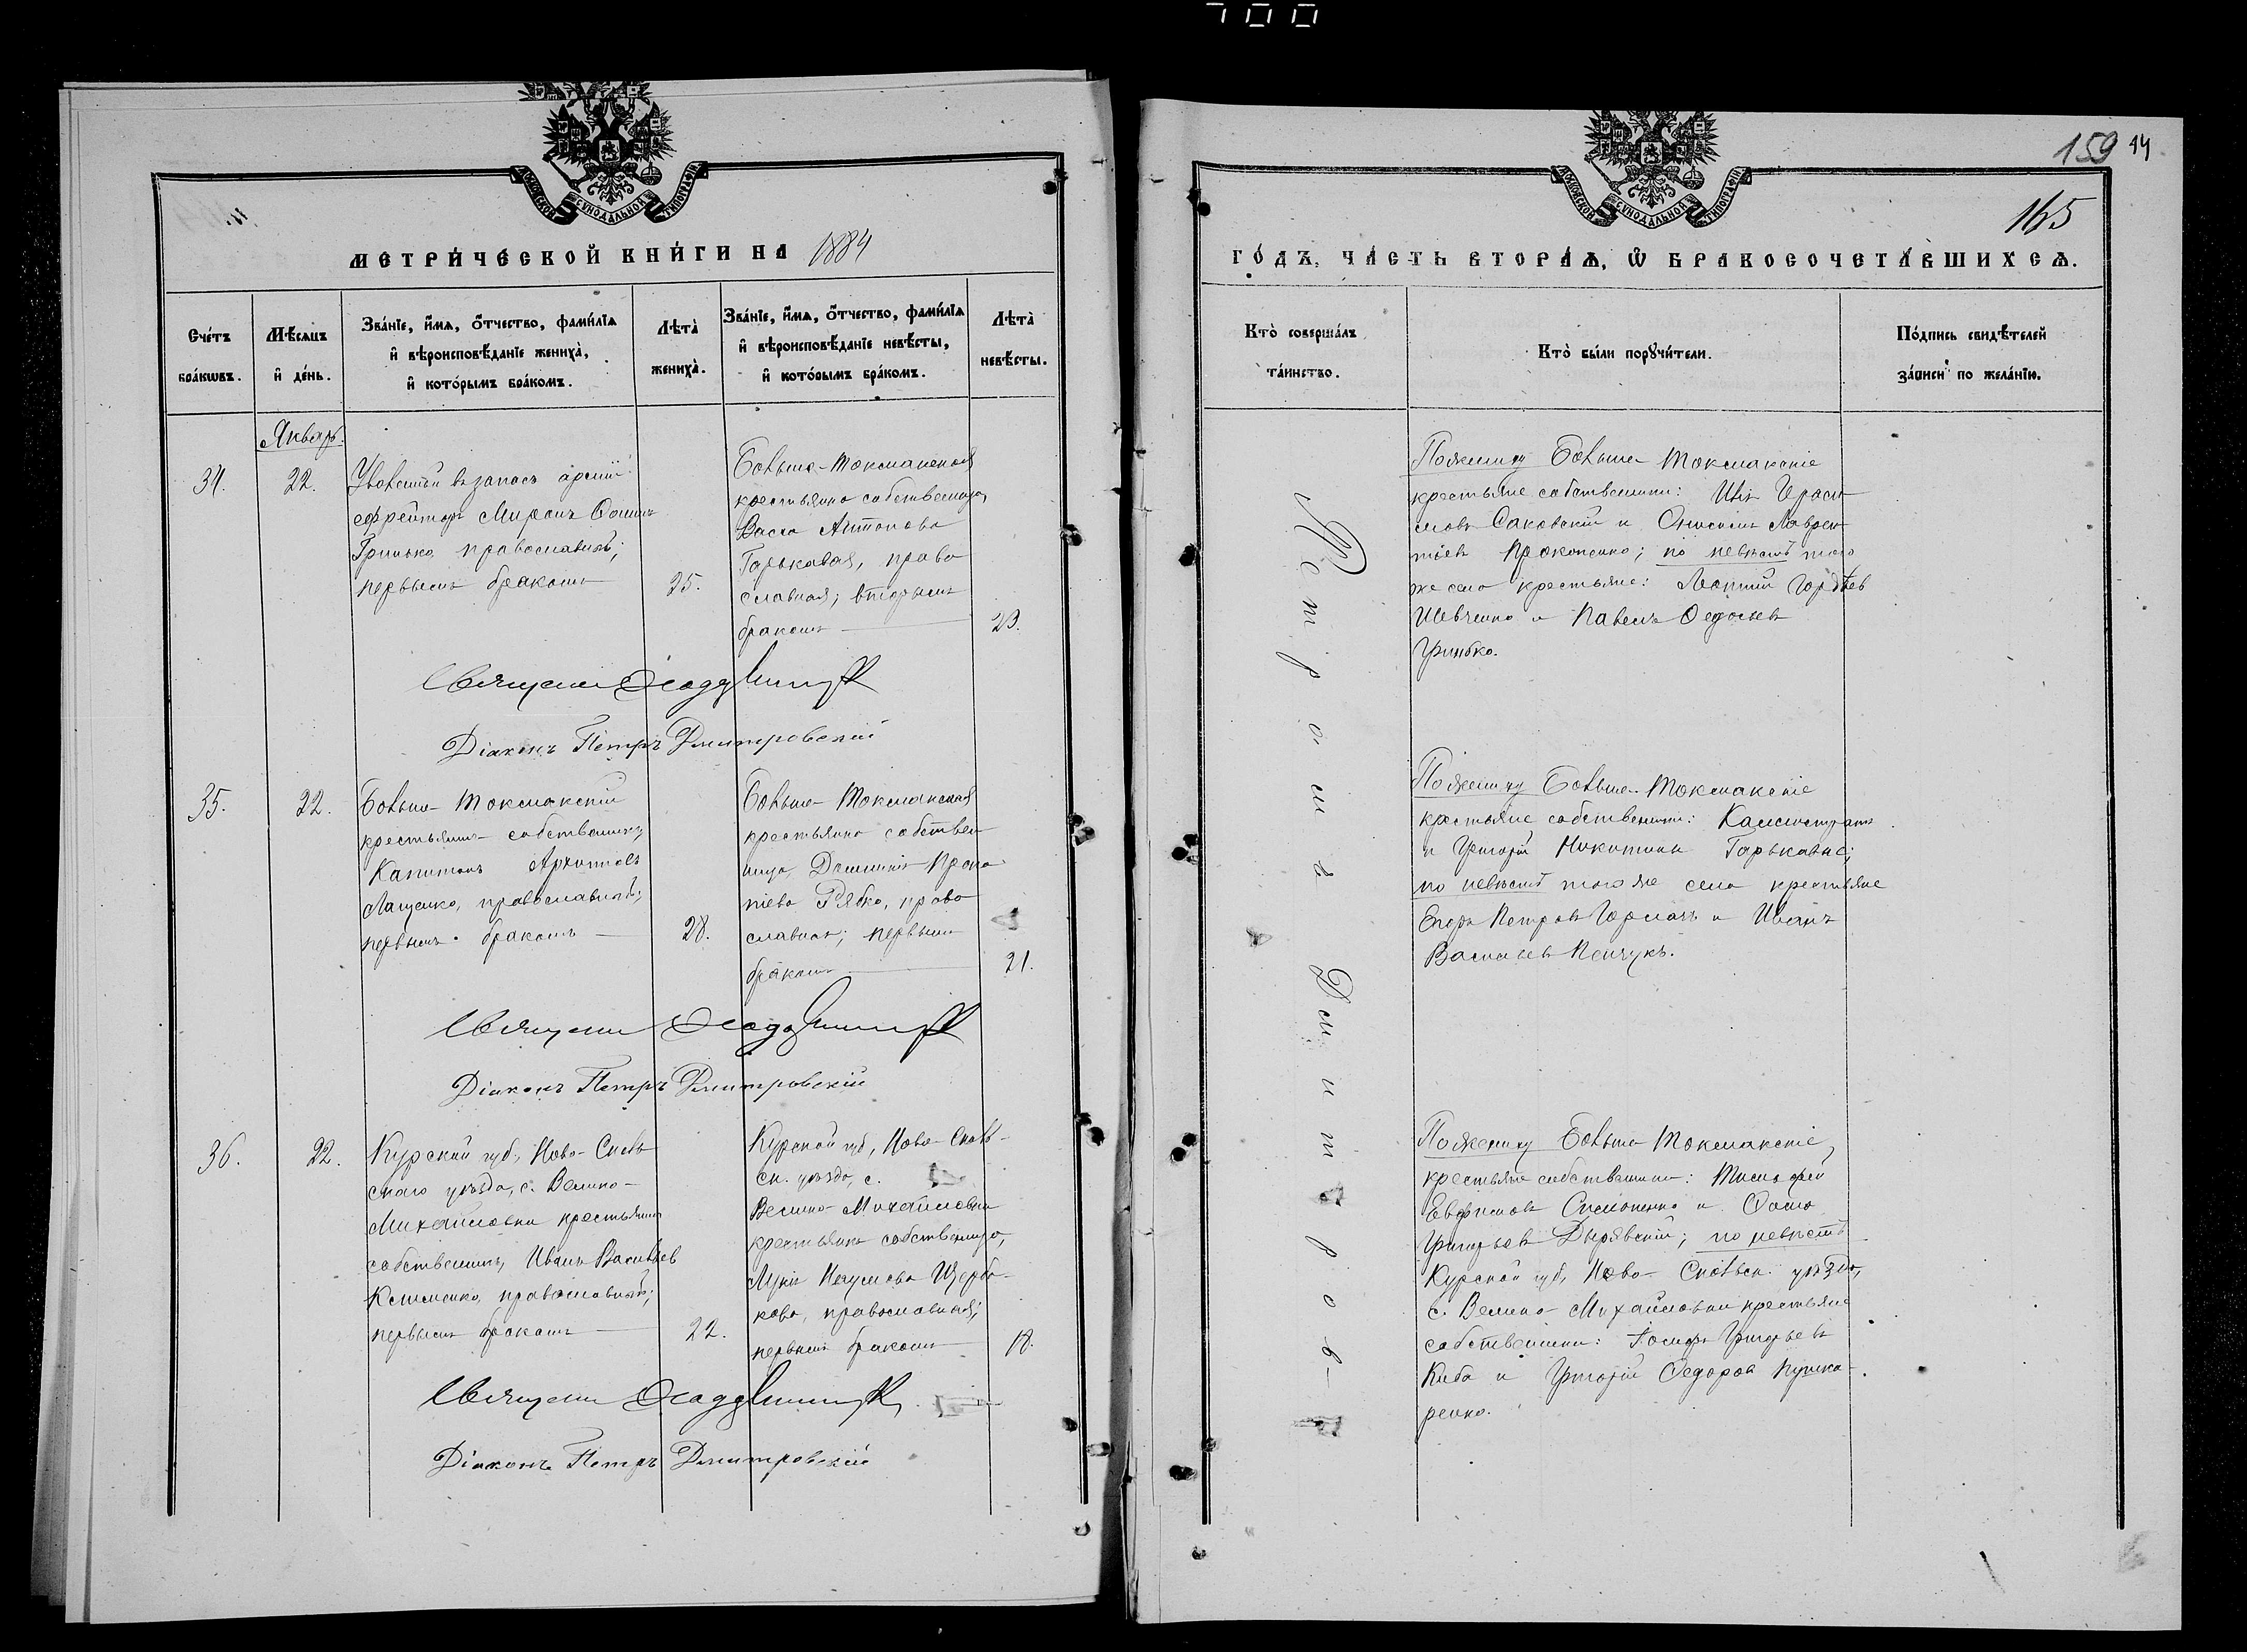 700
МОСКОВСКОЙ СѴНОДАЛЬНОЙ ТИПОГРАФІИ
МЕТРИ́ЧЕСКОЙ КНИ́ГИ НА 1884
Сче́тъ бра́кѡвъ.
Мѣ́сѧцъ и҆ де́нь.
Зва́нїе, и҆́мѧ, ѻ҆́тчество, фами́лїѧ
и҆ вѣроисповѣ́данїе жениха̀,
и҆ кото́рымъ бра́комъ.
Лѣта̀
жениха̀.
Зва́нїе, и҆́мѧ, ѻ҆́тчество, фами́лїѧ
и҆ вѣроисповѣ́данїе невѣ́сты,
и҆ кото́рымъ бра́комъ.
Лѣта̀
невѣ́сты.
Январь.
34.
22.
Уволенный въ запасъ арміи
ефрейторъ Миронъ Ѳоминъ
Гринько, православный;
первымъ бракомъ
25.
Больше-Токмакская
крестьянка собственница,
Васса Антонова
Горькавая, право
славная; вторымъ
бракомъ
23.
Діаконъ Петръ Дмитровскій
35.
22.
Больше-Токмакскій
крестьянинъ-собственникъ
Капитонъ Архиповъ
Лащенко, православный;
первымъ бракомъ
28.
Больше-Токмакская
крестьянка собствен
ница, Домникія Проко
піева Рябко, право
славная; первымъ
бракомъ
21.
Діаконъ Петръ Дмитровскій
36.
22.
Курской губ., Ново-Осколь
скаго уѣзда, с. Велико-
Михайловки крестьянинъ
собственникъ, Иванъ Васильевъ
Клименко, православный;
первымъ бракомъ
22.
Курской губ., Ново-Осколь-
ск. уѣзда, с.
Велико-Михайловки
крестьянка собственница,
Щерба-
кова, православная;
первымъ бракомъ
18.
Діаконъ Петръ Дмитровскій
159 14
165
МОСКОВСКОЙ СѴНОДАЛЬНОЙ ТИПОГРАФІИ
ГО́ДЪ, ЧА́СТЬ ВТОРА́Ѧ, Ѡ҆ БРАКОСОЧЕТА́ВШИХСѦ.
Кто̀ соверша́лъ
та́инство.
Кто̀ бы́ли порꙋчи́тели.
По́дпись свидѣ́телей
за́писи по жела́нїю.
Петромъ Дмитровъ
По жениху Больше-Токмакскіе
крестьяне собственники: Илія Гераси
мовъ Саковскій и Онисимъ Лаврен
тіевъ Прокопенко; по невѣстѣ того
же села крестьяне: Леонтій Гордѣевъ
Шевченко и Павелъ Ѳедосьевъ
Гринько.
По жениху Больше-Токмакскіе
крестьяне собственники: Каллистратъ
и Григорій Никитины Горькавые;
по невѣстѣ того же села крестьяне
Егоръ Петровъ Горлачъ и Иванъ
Васильевъ Пенчукъ.
По жениху Больше-Токмакскіе
крестьяне собственники: Тимофей
Евфимовъ Симоненко и Ѳома
Григорьевъ Дырявскій; по невѣстѣ
Курской губ., Ново-Оскольск. уѣзда,
с. Велико-Михайловки крестьяне
собственники: Іосифъ Григорьевъ
Киба и Григорій Ѳедоровъ Пушка-
ренко.